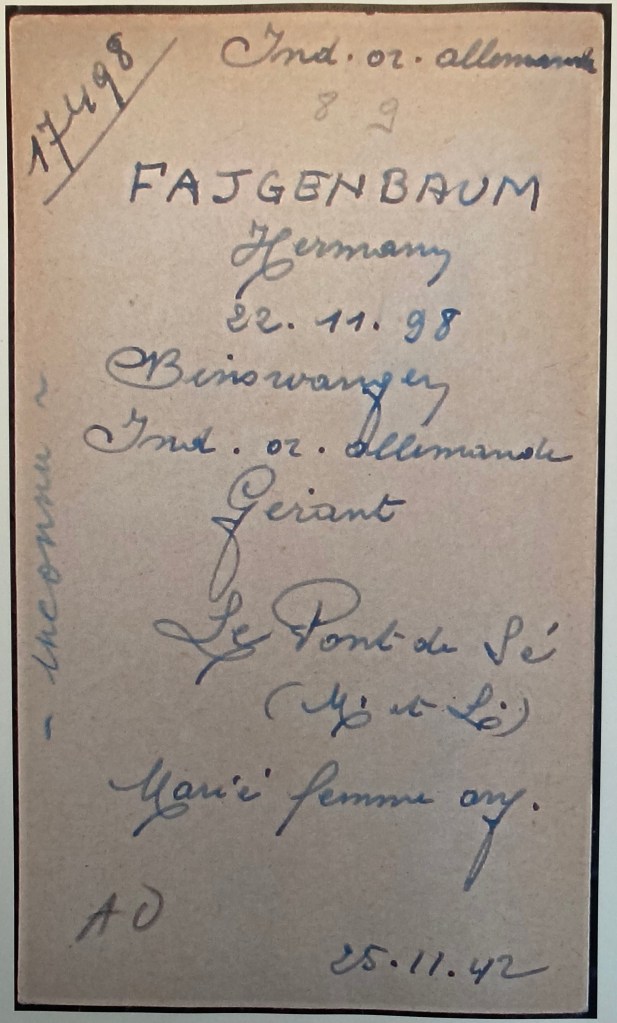 17498
Ind. or. allemande
8 9
FAJGENBAUM
Hermann
22.11.98
Binswangen
Ind. or. allemande
Gérant
Le Pont de Sé
(M. et L.)
Marié femme ary.
- inconnu -
AD
25.11.42